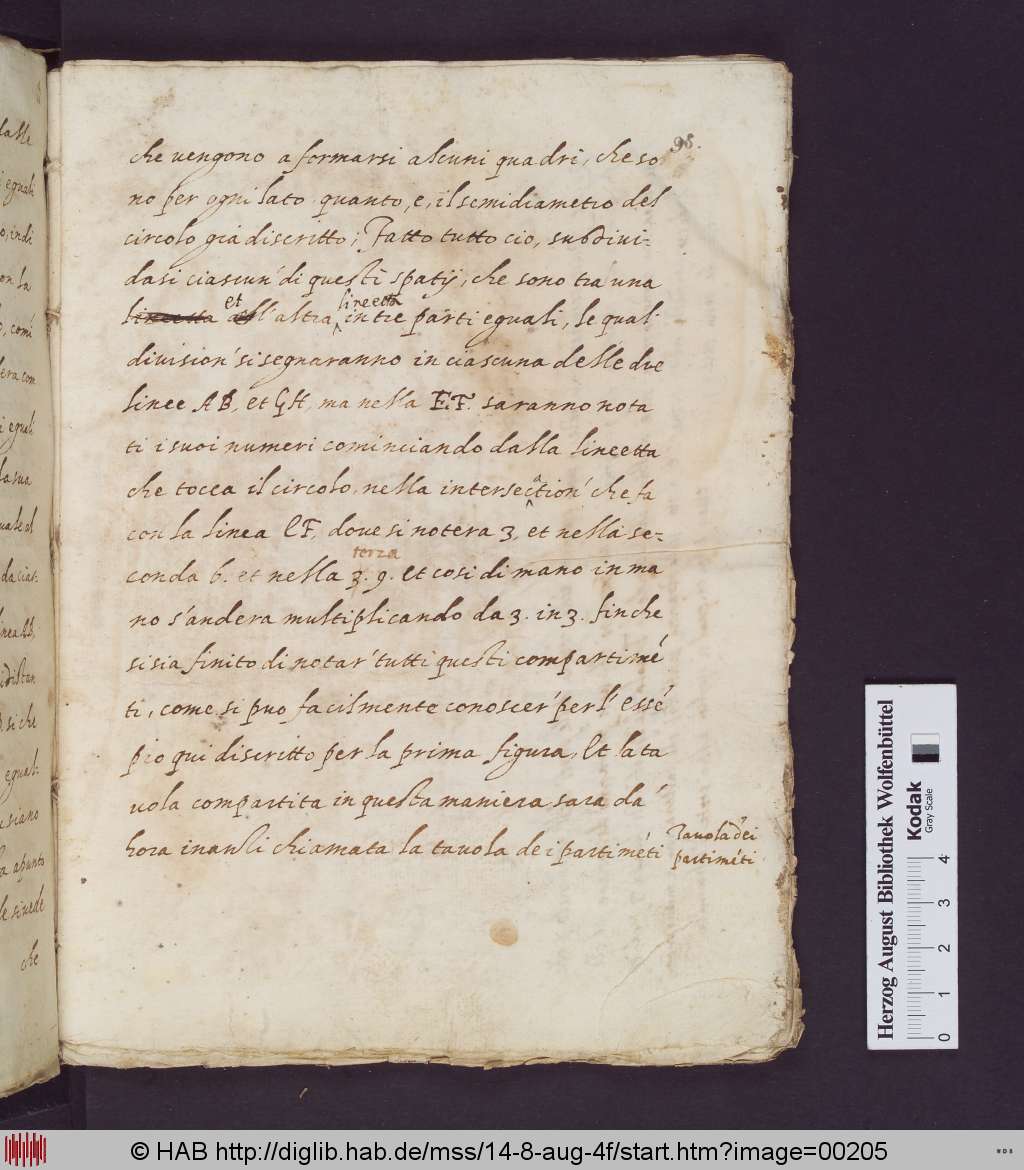 98.
che vengono a formarsi alcuni quadri, che so
no per ogni lato quanto, e, il semidiametro del
circolo già discritto; Fatto tutto cio, subdivi-
dasi ciascun' di questi spatij, che sono tra una
lineetta et all'altra lineetta in tre parti eguali, le qual'
division' si segnaranno in ciascuna delle due
linee AB, et GH, ma nella E.F. saranno nota
ti i suoi numeri cominciando dalla lineetta
che tocca il circolo, nella intersection' che fa
con la linea CF, dove si notera 3, et nella se-
conda 6. et nella 3. terza 9. et cosi di mano in ma
no s'andera multiplicando da 3. in 3. finche
si sia finito di notar' tutti questi compartimé
ti, come si puo facilmente conoscer' per l' essé
pio qui discritto per la prima figura, Et la ta
vola compartita in questa maniera sara dá
hora inanti chiamata la tavola de i partiméti
Tavola dei
partiméti
che
Herzog August Bibliothek Wolfenbüttel
Kodak
Gray Scale
0 1 2 3 4
© HAB http://diglib.hab.de/mss/14-8-aug-4f/start.htm?image=00205